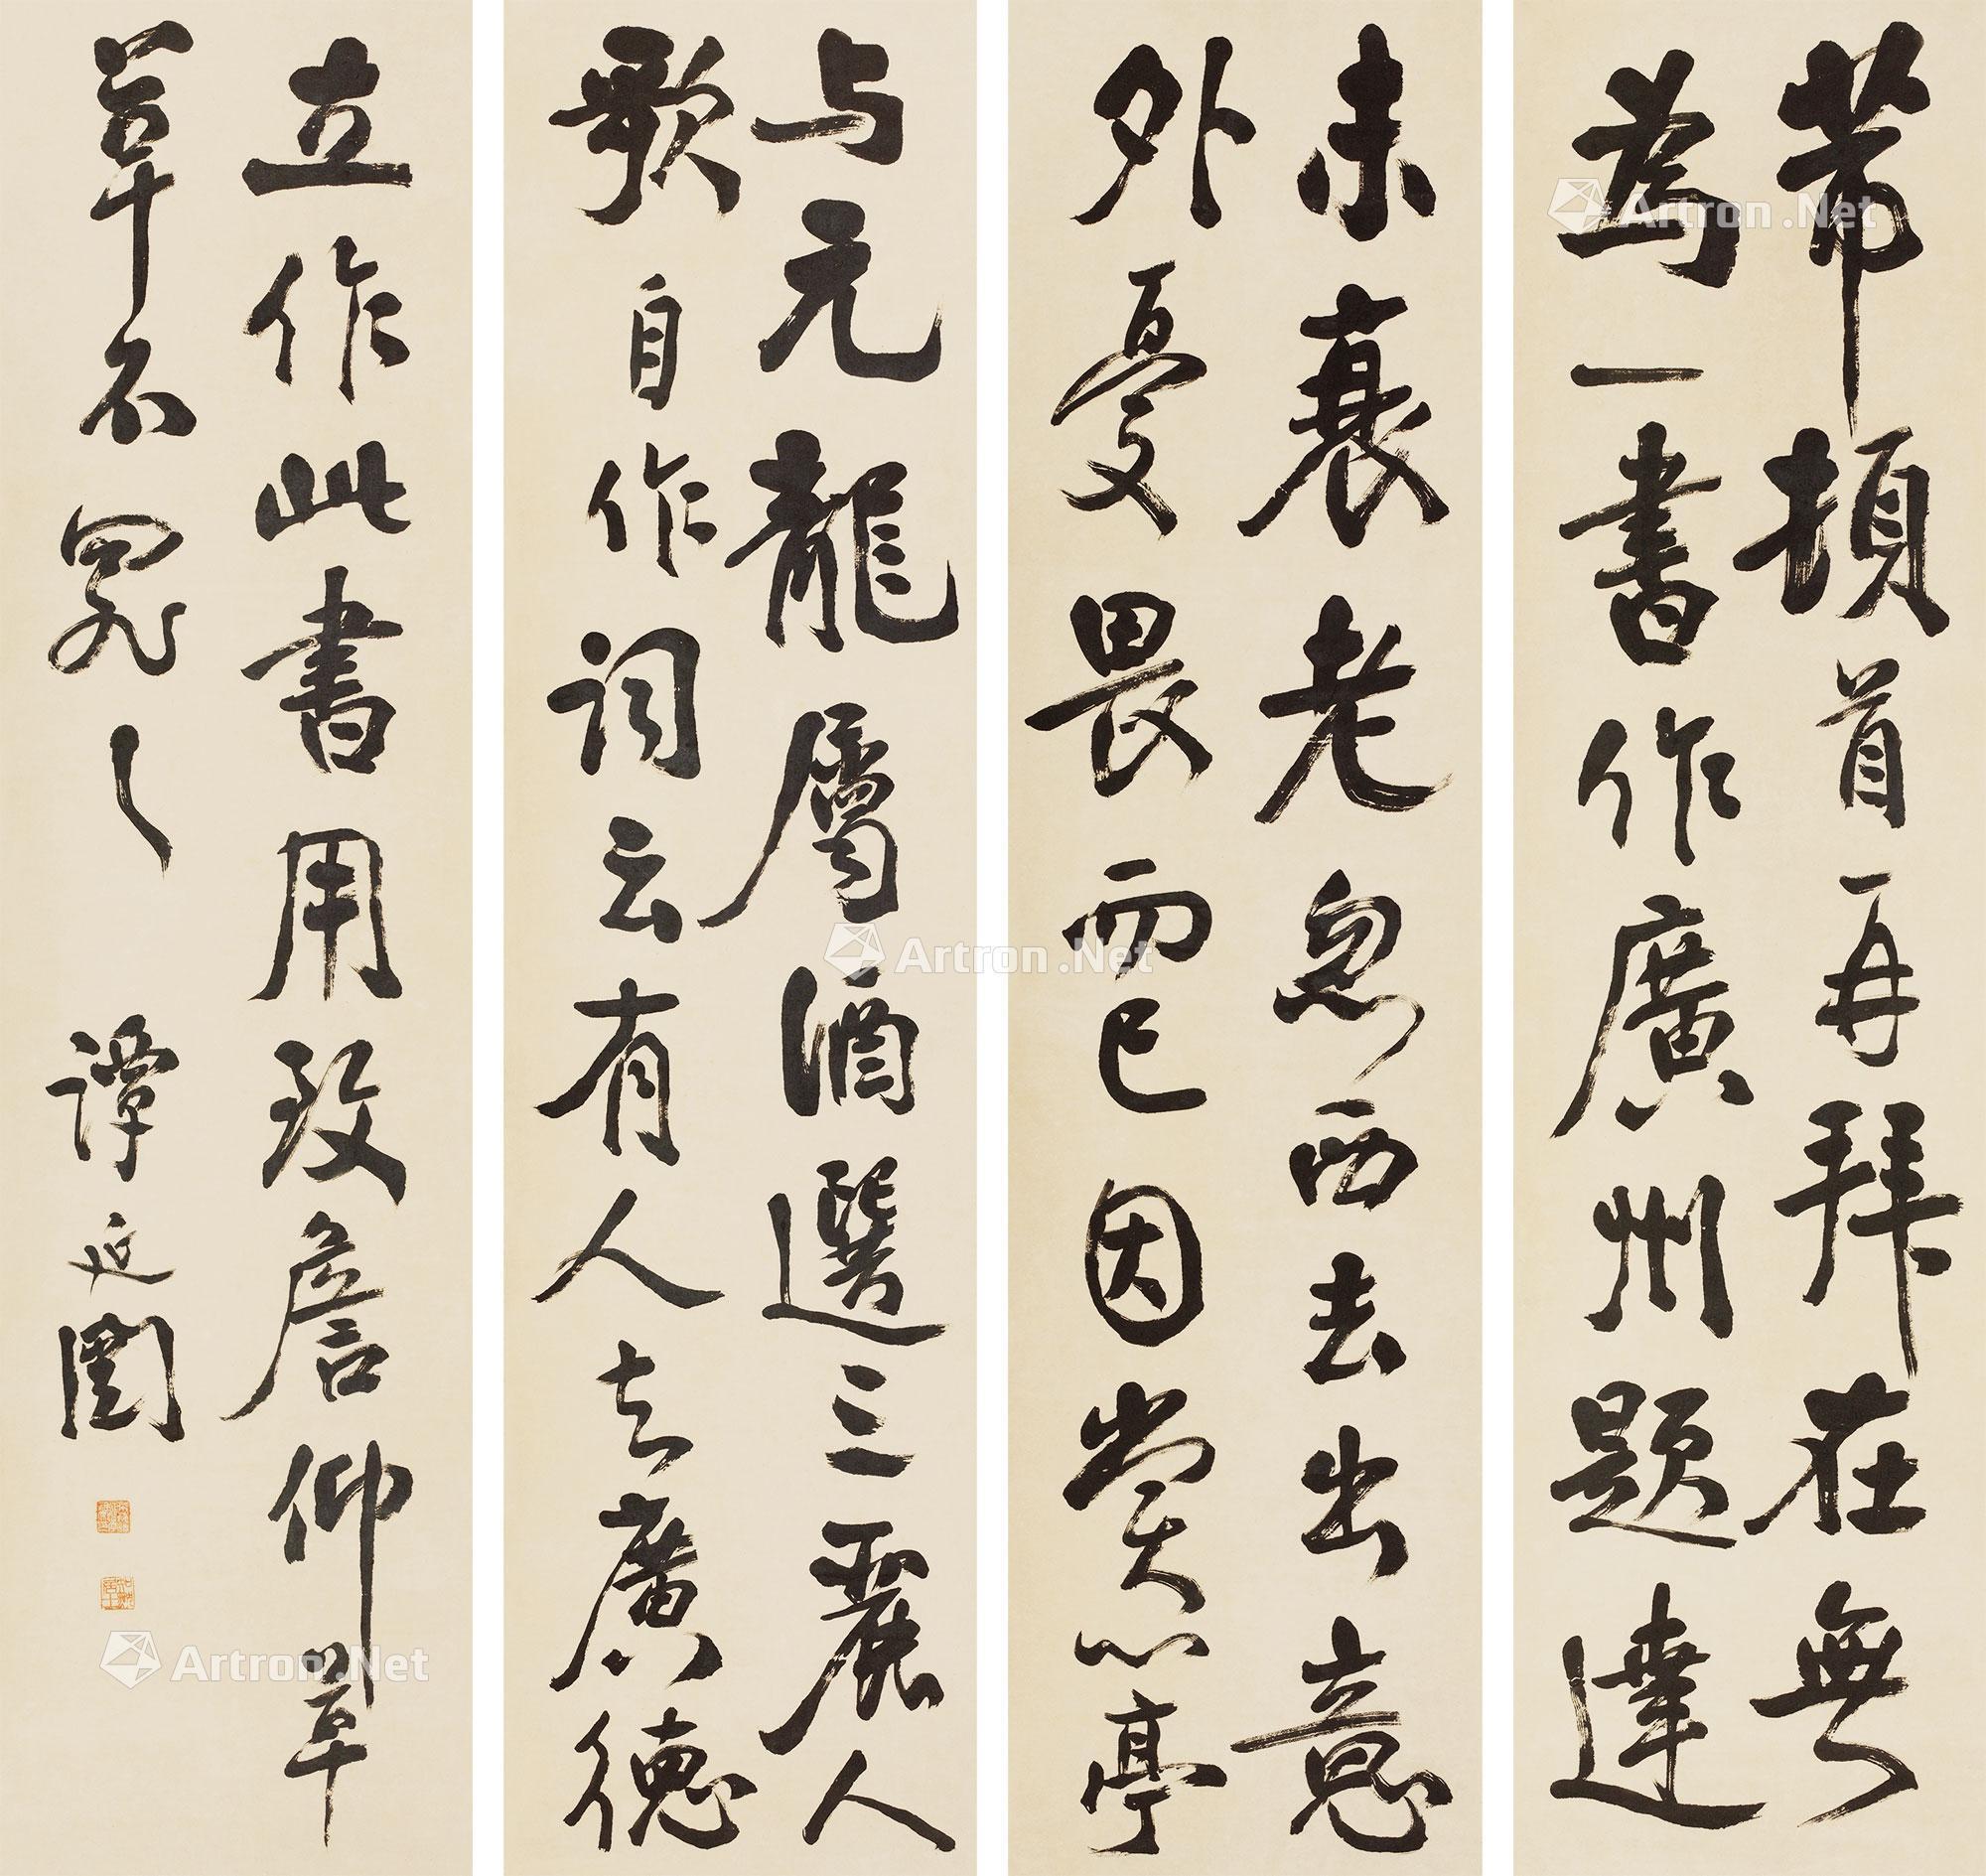 芾頓首再拜在無
為一書作廣州題達
未衰老忽西去出意
外憂畏而已因賞心亭
与元龍屬酒選三麗人
歌自作詞云有人去廣德
立作此書用致詹仰草
草不罪〻
譚延闓
Artron.Net
Artron.Net
Artron.Net